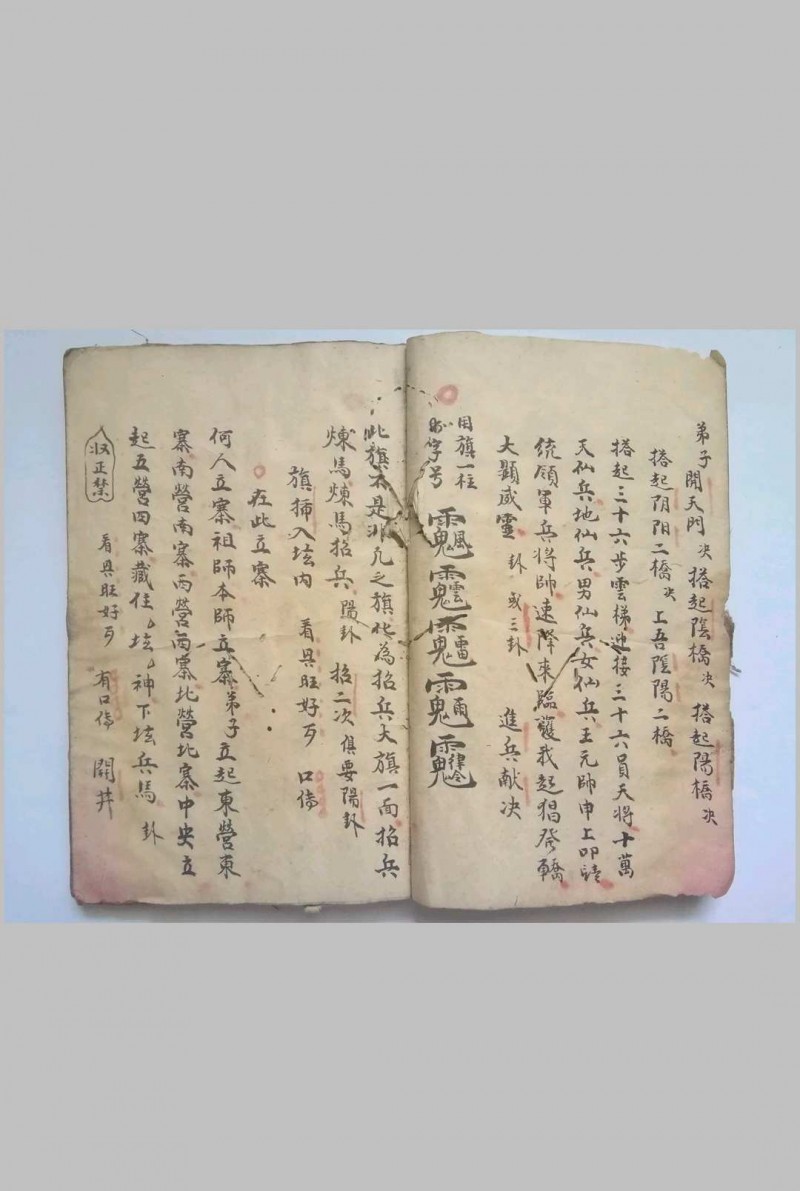 弟子開天門决搭起陰橋决搭起陽橋决
搭起阴阳二橋决上吾陰陽二橋
搭起三十六步雲梯迎接三十六員天將十萬
天仙兵地仙兵男仙兵女仙兵王元帥申上叩
统領軍兵將帥速降來臨護我起猖發轎
大顯威靈 卦或三卦 進兵献决
用旗一柱
字号
此旗不是非凡之旗化為招兵大旗一面招兵
煉馬煉馬招兵 陽卦 招二次俱要陽卦
旗插入坛内 看具旺好歹 口傳
在此立寨
何人立寨祖師本師立寨弟子立起東營東
寨南營南寨西營西寨北營北寨中央立
起五營四寨藏住坛神下坛兵馬 卦
收正禁 看具旺好歹 有口傳 開井